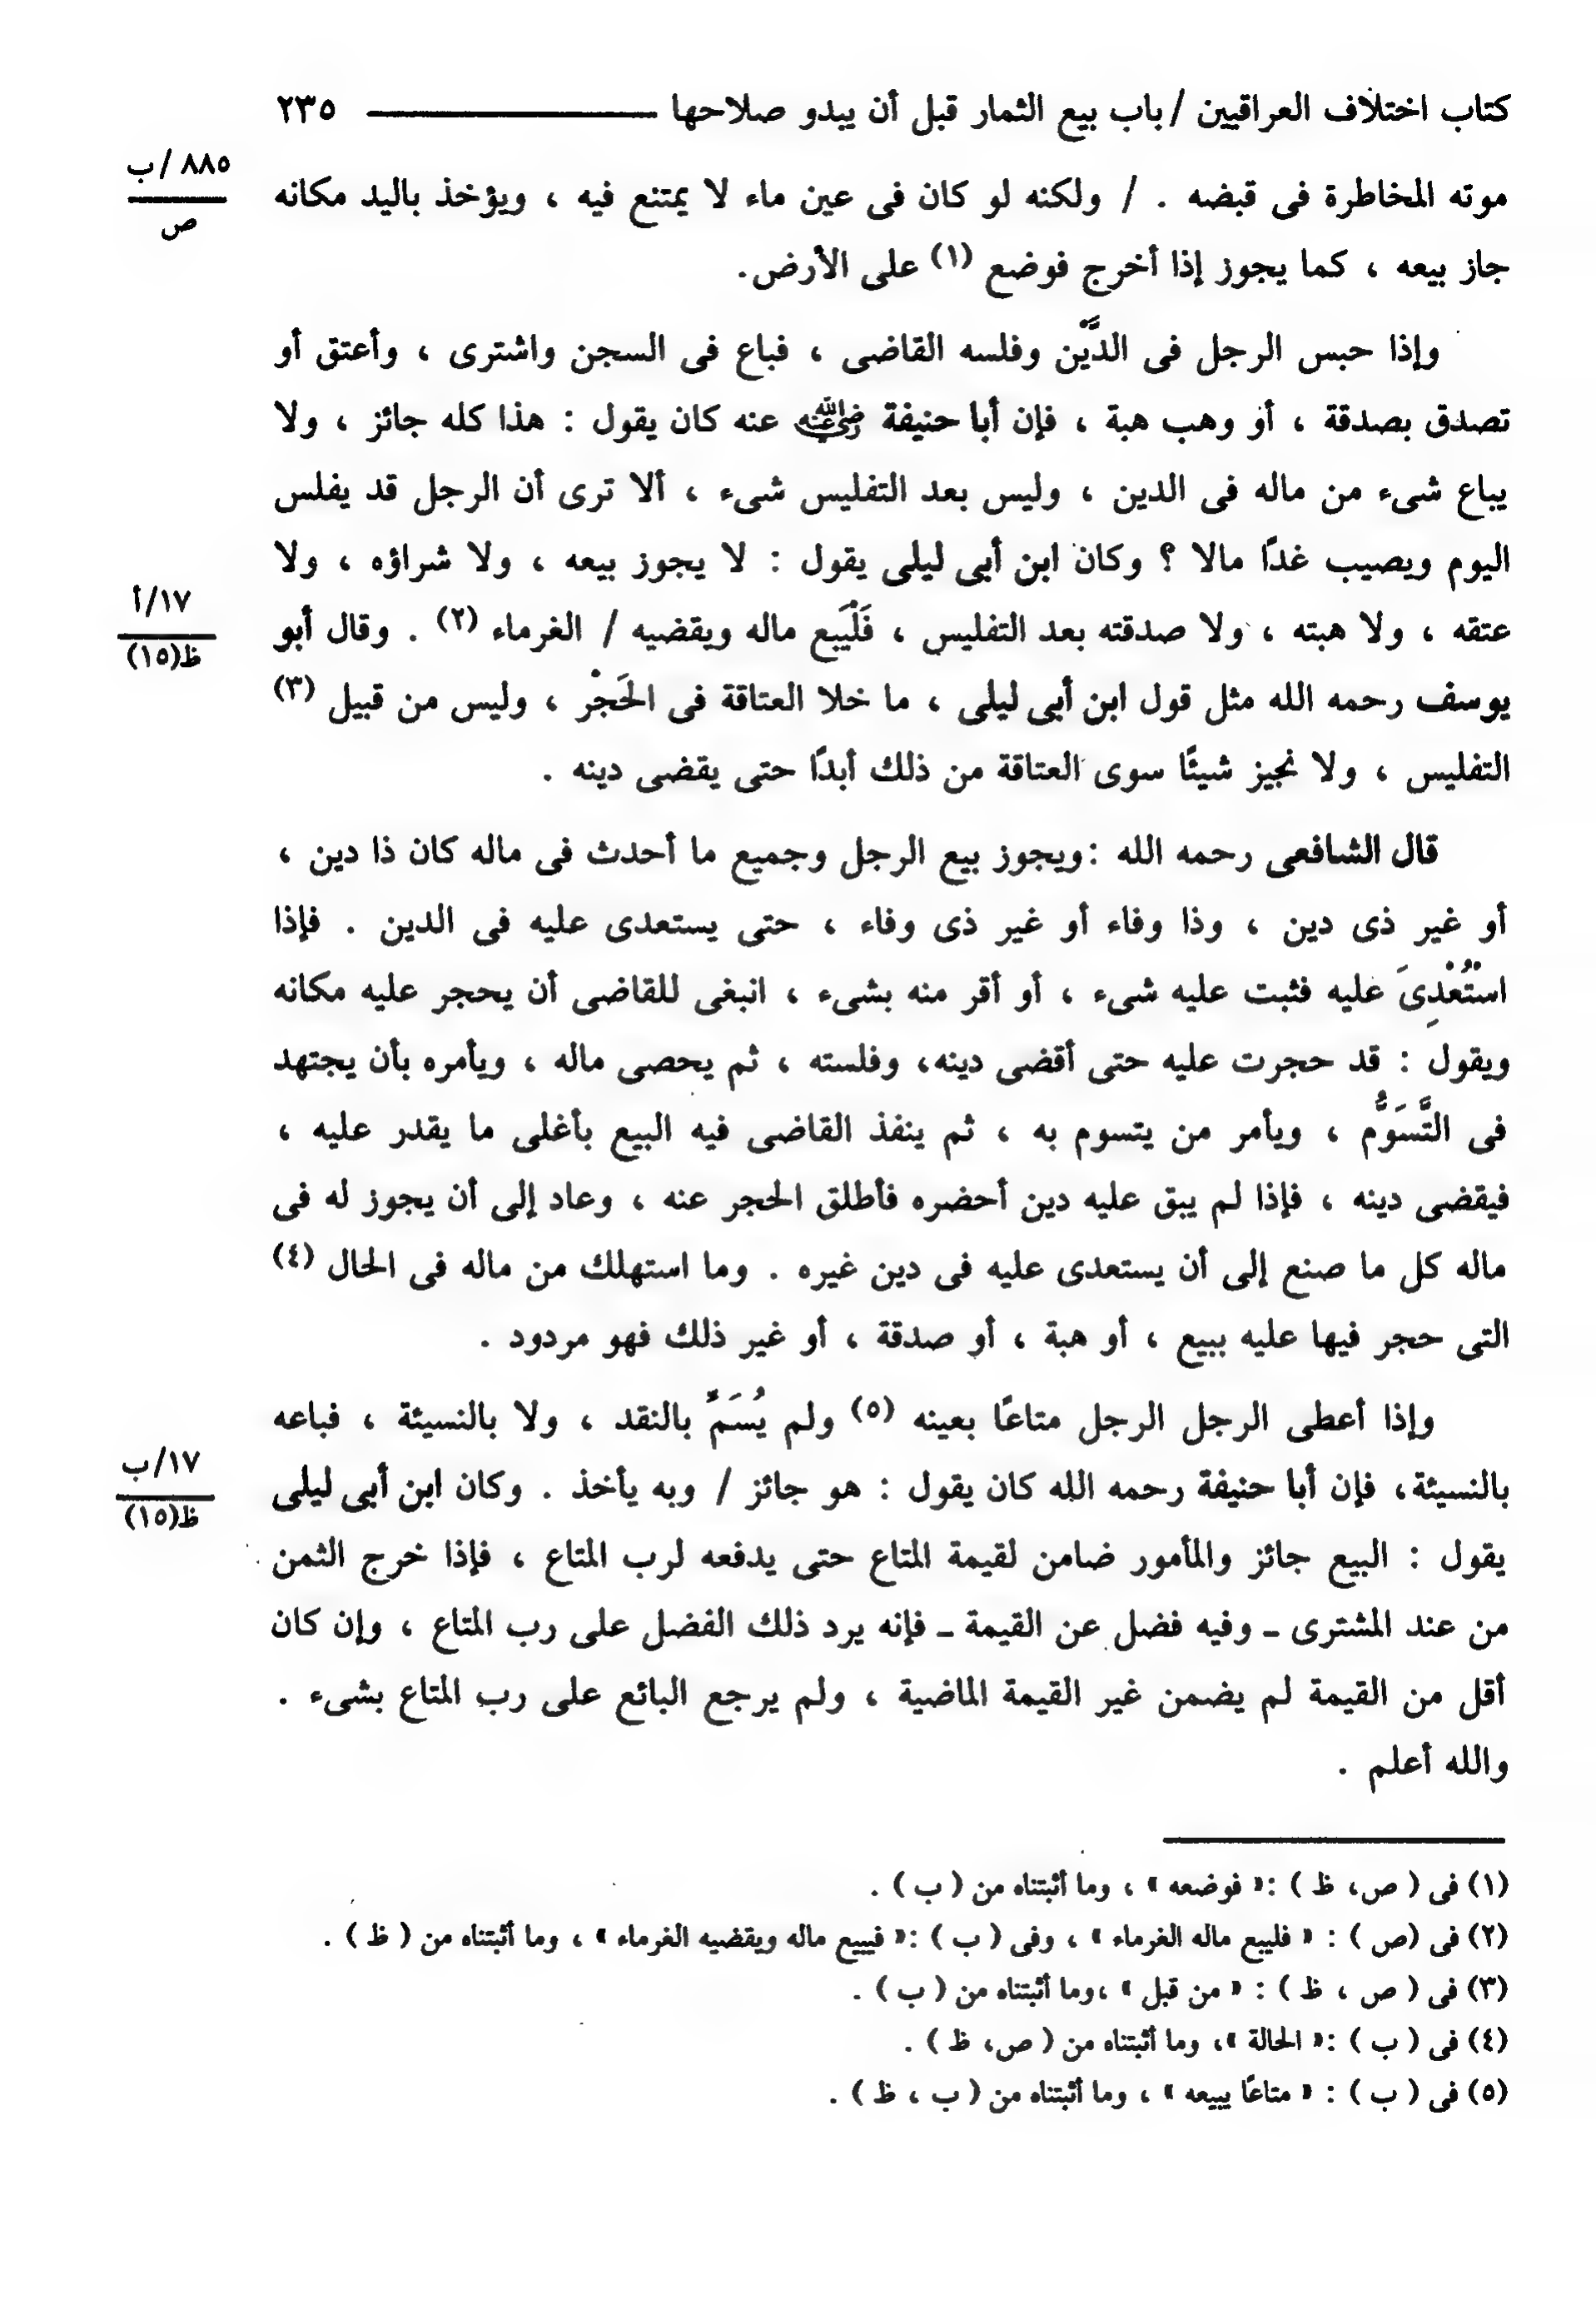 كتاب اختلاف العراقيين / باب بيع الثمار قبل أن يبدو صلاحها ٢٣٥
موته المخاطرة فى قبضه . / ولكنه لو كان فى عين ماء لا يمتنع فيه ، ويؤخذ باليد مكانه
٨٨٥ / ب
ص
جاز بيعه ، كما يجوز إذا أخرج فوضع (١) على الأرض.
وإذا حبس الرجل فى الدَّيْن وفلسه القاضى ، فباع فى السجن واشترى ، وأعتق أو
تصدق بصدقة ، أو وهب هبة ، فإن أبا حنيفة رضي الله عنه عنه كان يقول : هذا كله جائز ، ولا
يباع شىء من ماله فى الدين ، وليس بعد التفليس شىء ، ألا ترى أن الرجل قد يفلس
اليوم ويصيب غدًا مالا ؟ وكان ابن أبى ليلى يقول : لا يجوز بيعه ، ولا شراؤه ، ولا
عتقه ، ولا هبته ، ولا صدقته بعد التفليس ، فَلْيَبع ماله ويقضيه / الغرماء (٢) . وقال أبو
١٧/أ
ظ(١٥)
يوسف رحمه الله مثل قول ابن أبى ليلى ، ما خلا العتاقة فى الحَجْر ، وليس من قبيل (٣)
التفليس ، ولا نجيز شيئًا سوى العتاقة من ذلك أبدًا حتى يقضى دينه .
قال الشافعى رحمه الله :ويجوز بيع الرجل وجميع ما أحدث فى ماله كان ذا دين ،
أو غير ذى دين ، وذا وفاء أو غير ذى وفاء ، حتى يستعدى عليه فى الدين . فإذا
اسْتُعْدِىَ عليه فثبت عليه شىء ، أو أقر منه بشىء ، انبغى للقاضى أن يحجر عليه مكانه
ويقول : قد حجرت عليه حتى أقضى دينه، وفلسته ، ثم يحصى ماله ، ويأمره بأن يجتهد
فى التَّسَوُّم ، ويأمر من يتسوم به ، ثم ينفذ القاضى فيه البيع بأغلى ما يقدر عليه ،
فيقضى دينه ، فإذا لم يبق عليه دين أحضره فأطلق الحجر عنه ، وعاد إلى أن يجوز له فى
ماله كل ما صنع إلى أن يستعدى عليه فى دين غيره . وما استهلك من ماله فى الحال (٤)
التى حجر فيها عليه ببيع ، أو هبة ، أو صدقة ، أو غير ذلك فهو مردود .
وإذا أعطى الرجل الرجل متاعًا بعينه (٥) ولم يُسَمِّ بالنقد ، ولا بالنسيئة ، فباعه
بالنسيئة، فإن أبا حنيفة رحمه الله كان يقول : هو جائز / وبه يأخذ . وكان ابن أبى ليلى
١٧/ب
ظ(١٥)
يقول : البيع جائز والمأمور ضامن لقيمة المتاع حتى يدفعه لرب المتاع ، فإذا خرج الثمن
من عند المشترى ـ وفيه فضل عن القيمة ـ فإنه يرد ذلك الفضل على رب المتاع ، وإن كان
أقل من القيمة لم يضمن غير القيمة الماضية ، ولم يرجع البائع على رب المتاع بشىء .
والله أعلم .
(١) فى ( ص، ظ ) :« فوضعه » ، وما أثبتناه من ( ب ) .
(٢) فى (ص ) : « فليبع ماله الغرماء » ، وفى ( ب ) :« فيبيع ماله ويقضيه الغرماء » ، وما أثبتناه من ( ظ ) .
(٣) فى ( ص ، ظ ) : « من قبل » ،وما أثبتناه من ( ب ) .
(٤) فى ( ب ) :« الحالة »، وما أثبتناه من ( ص، ظ ) .
(٥) فى ( ب ) : « متاعًا يبيعه » ، وما أثبتناه من ( ب ، ظ ) .